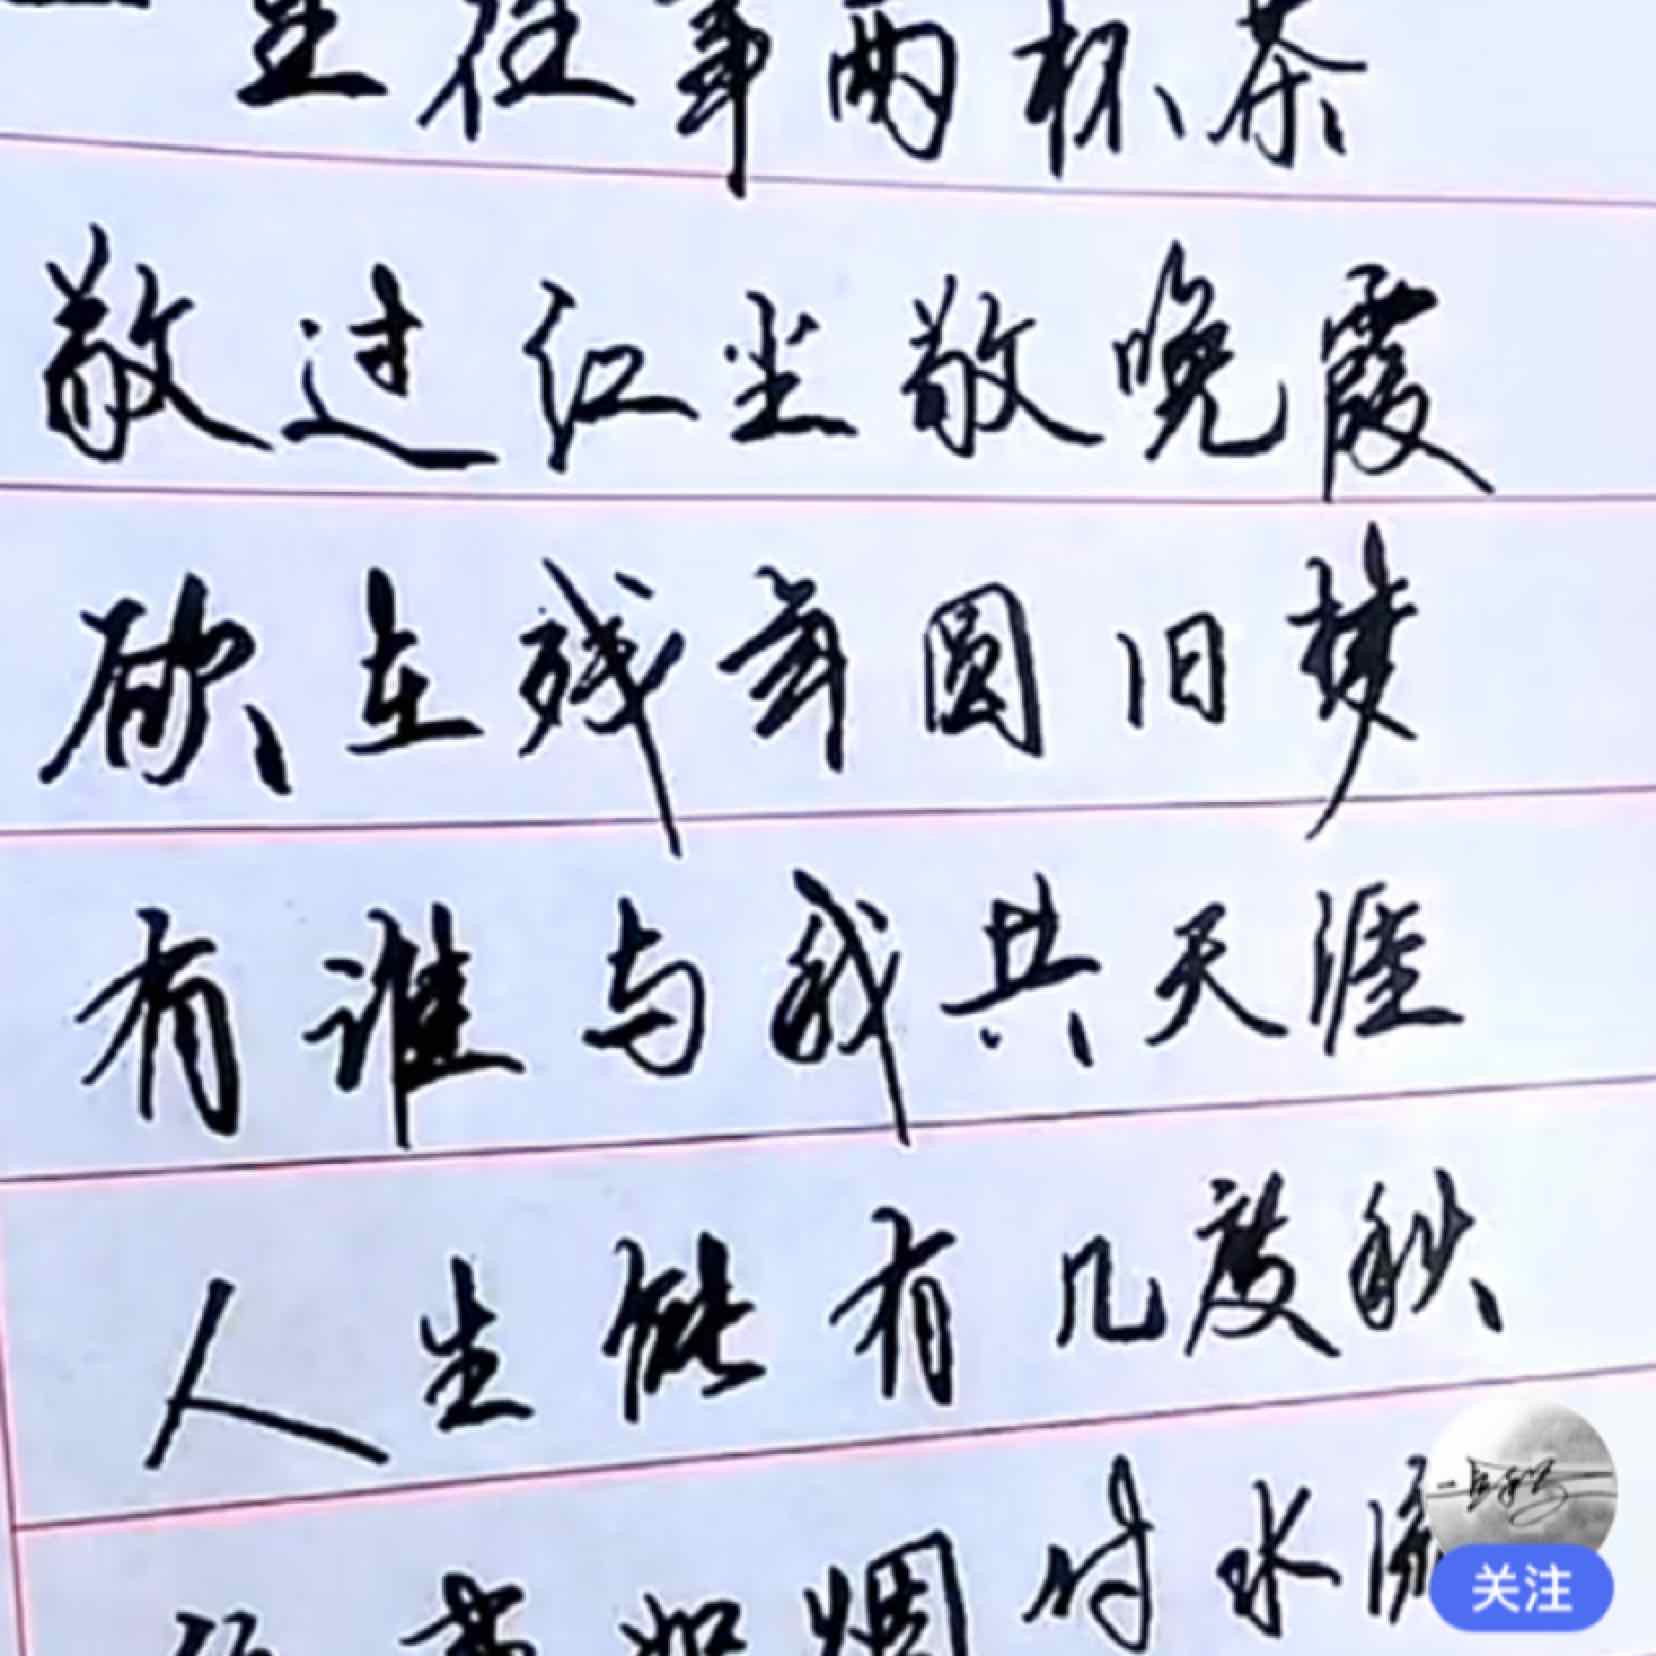 生往事两杯茶
敬过红尘敬晚霞
欲在残年圆旧梦
有谁与我共天涯
人生能有几度秋
往事如烟付水流
关注